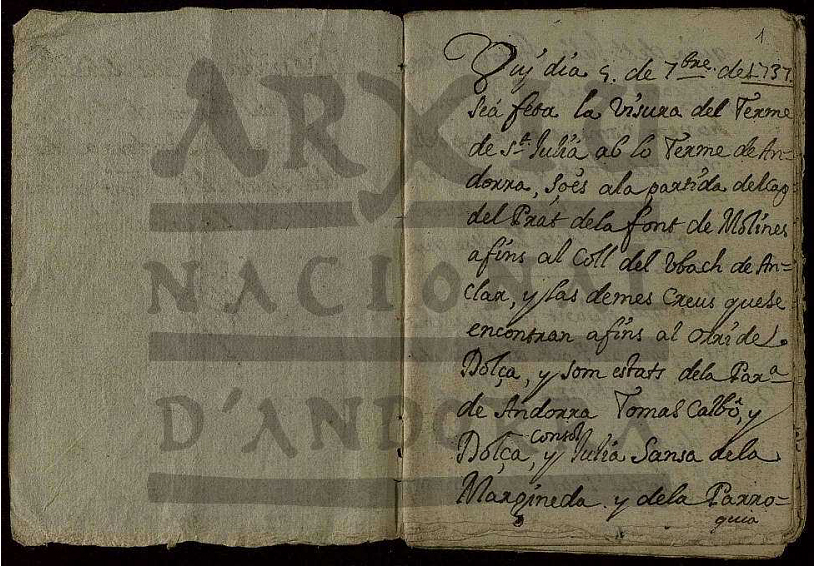 1
Vuÿ dia 9. de 7bre. de 1737.
seá feta la Visura del Terme
de St. Juliá ab lo Terme de An=
dorra, ço es a la partida del cap
del Prát dela font de Molines
afins al Coll del Vbach de An=
clar, y las demes Creus quese
encontran afins al orri de
Dolça, y som estats dela Para
de Andorra Tomas Calbó, y
Dolça, Consol y Juliá Sansa dela
Margineda y dela Parro=
quia
ARXIU
NACIONAL
D'ANDORRA